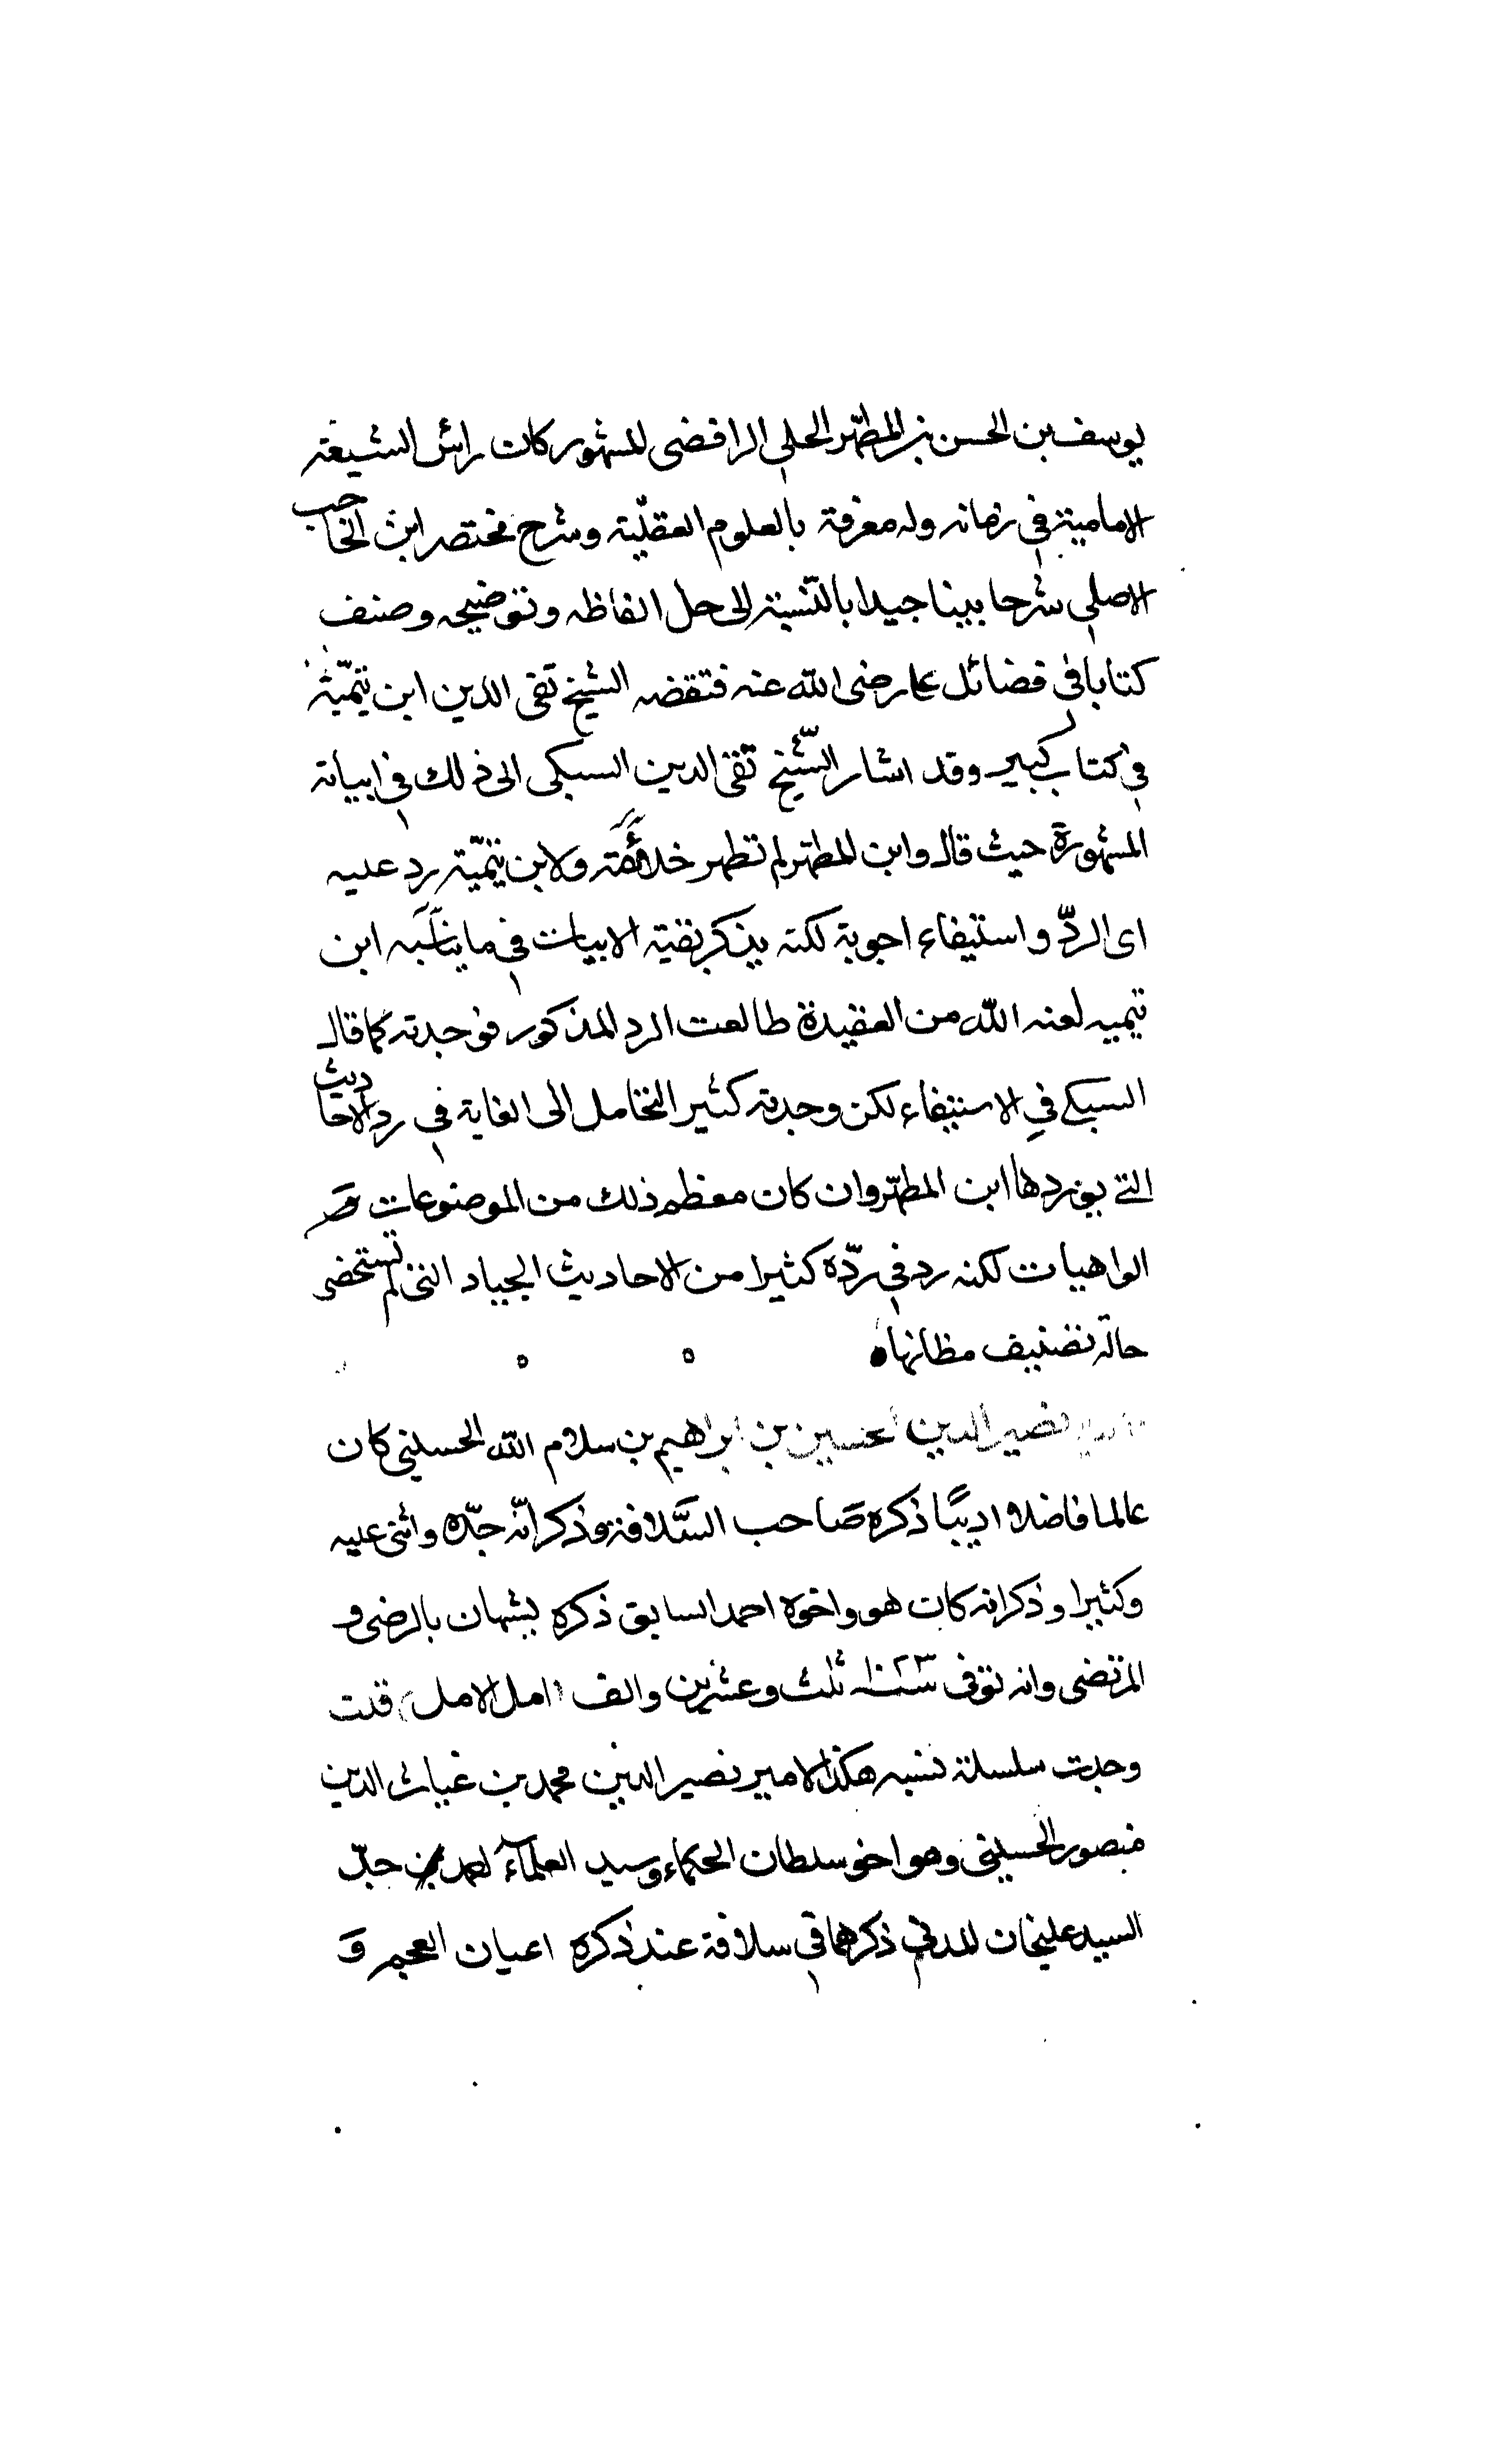 يوسف بن الحسن بن المطهّر الحلي الرافضى المشهور كان رأس الشيعة
الامامية في زمانه وله معرفة بالعلوم العقليّة وشرح مختصر ابن الحاجب
الاصلي شرحا بينا جيدا بالنّسبة الى حل الفاظه وتوضيحه وصنف
كتابا فى فضائل على رضى الله عنه فنقضه الشيخ تقى الدين ابن تيميّة
في كتاب كبير وقد اشار الشّيخ تقى الدين السبكى الى ذلك في ابياته
المشهورة حيث قال وابن المطهر لم تطهر خلائقه ولابن تيميّة رد عليه
اى الردّ و استيفاء اجوبة لكنه يذكر بقية الابيات في ما
ابن
تيميه لعنه الله من العقيدة طالعت الرد المذكور فوجدته كما قال
السبكى في الاستيفاء لكن وجدته كثير التحامل الى الغاية في رد الاحاديث
التي يوردها ابن المطهّر وان كان معظم ذلك من الموضوعات و
الواهيات لكنه رد في ردّه كثيرا من الاحاديث الجياد التى لم تستحضر
حالة تصنيف مظانها
نصير الدين حسين بن ابراهيم بن سلام الله الحسيني كان
عالما فاضلا اديبًا ذكره صَاحب السَّلافة وذكر انّه جدّه واثنى عليه
وكثيرا وذكر انه كان هو واخوه احمد السابق ذكره يشبهان بالرضى و
المرتضى وانه توفى سنة ١٠٢٣ ثلث وعشرين والف (امل الامل) قلت
وجدت سلسلة نسبه هكذا الامير نصير الدين محمد بن غياث الدين
منصور الحسيني وهو اخو سلطان الحكماء وسيد العلمآء احمد
جدّ
السيد عليخان المدني ذكرهما في سلافة عند ذكره اعيان العجم وَ